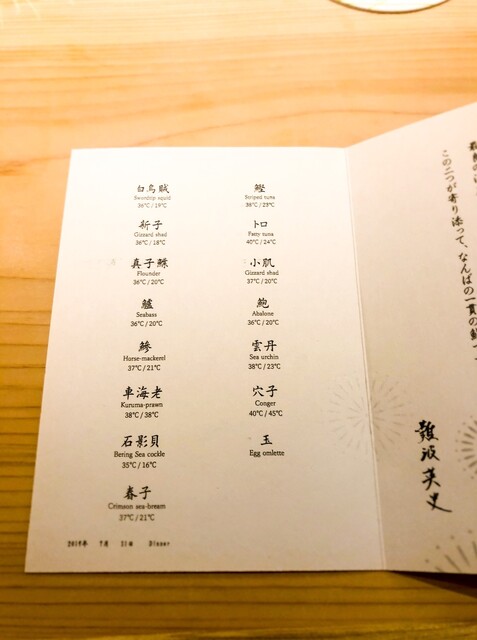 白烏賊
Swordtip squid
36℃/19℃
新子
Gizzard shad
36℃/18℃
真子鰈
Flounder
36℃/20℃
鱸
Seabass
36℃/20℃
鯵
Horse-mackerel
37℃/21℃
車海老
Kuruma-prawn
38℃/38℃
石影貝
Bering Sea cockle
35℃/16℃
春子
Crimson sea-bream
37℃/21℃
鰹
Striped tuna
36℃/23℃
トロ
Fatty tuna
40℃/24℃
小肌
Gizzard shad
37℃/20℃
鮑
Abalone
36℃/20℃
雲丹
Sea urchin
38℃/23℃
穴子
Conger
40℃/45℃
玉
Egg omlette
2019年 7月 21日 Dinner
この二つが寄り添って、なんばの一貫の鮨
難波英史